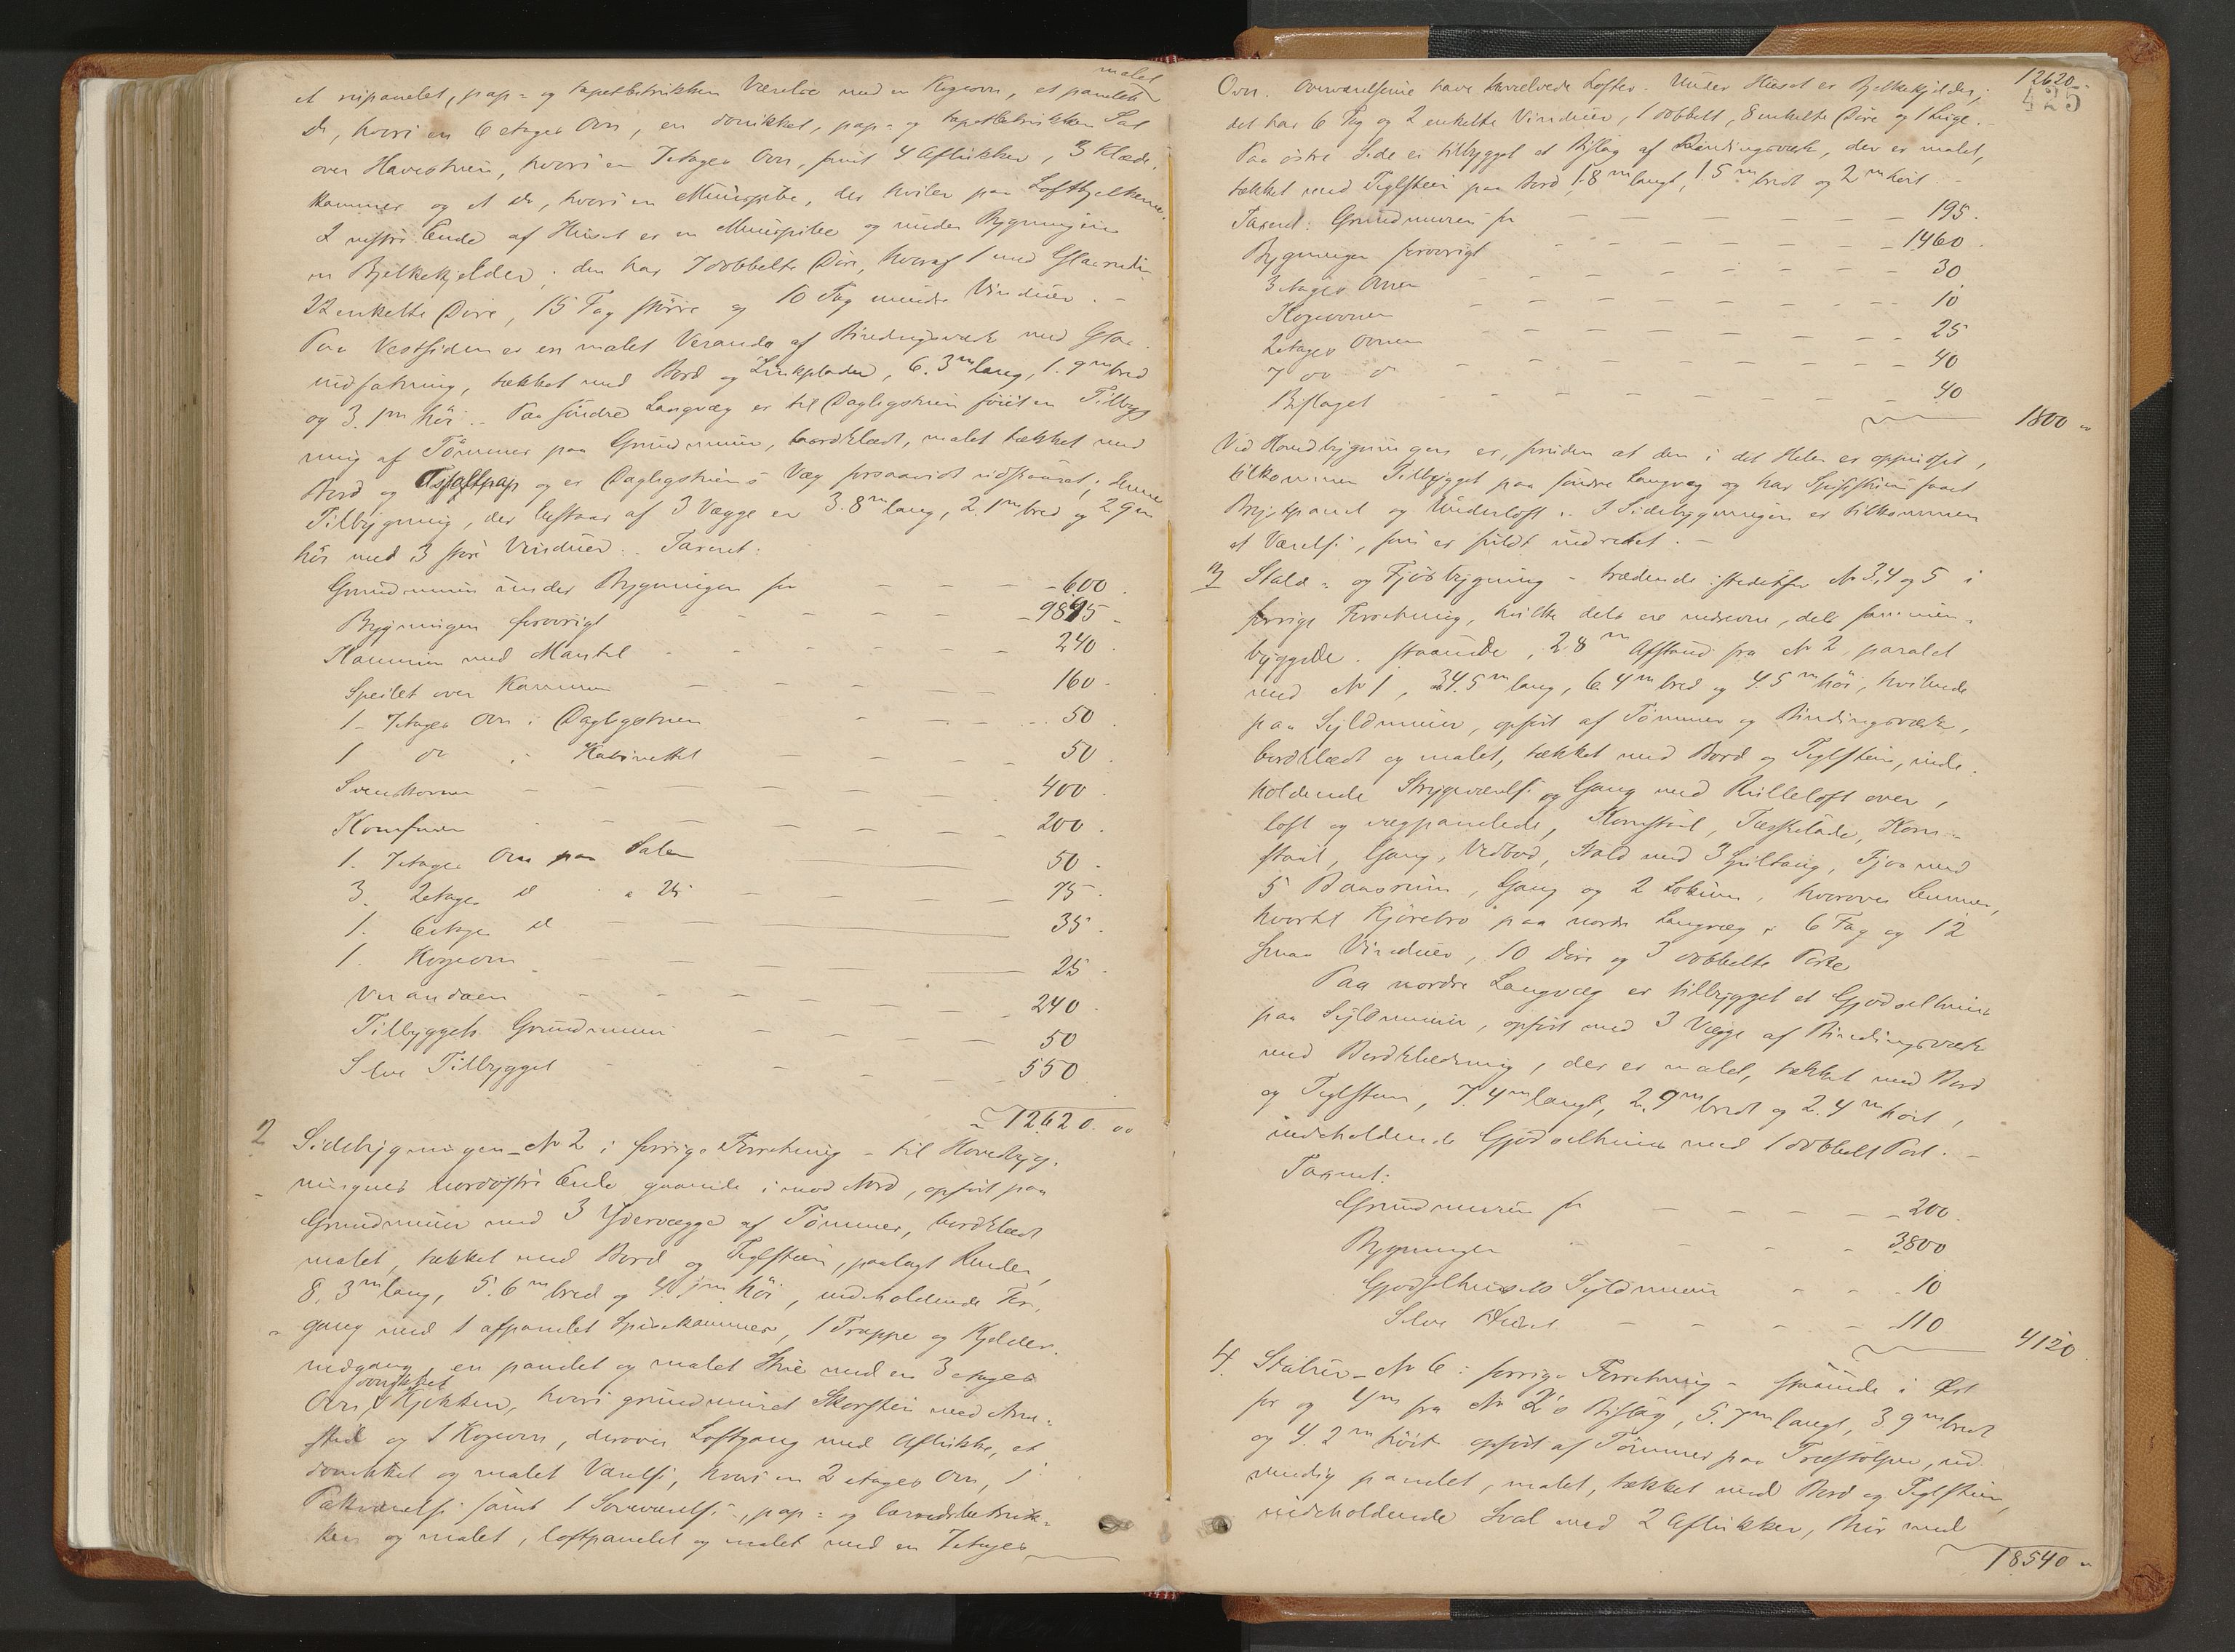 malet
et nipanelet, pap- og tapetbetrukken Værelse med en Kogeovn, et panelet
do, hvori en 6 etages Ovn, en donikket, pap- og tapetbetrukken Sal
over Havestuen, hvori en 7etages Ovn, samt 4 Aflukker, 3 Klæde-
kammer og et do, hvori en Muurpibe, der hviler paa Loftbjelkerne.
I vestre Ende af Huset er en Muurpibe og under Bygningen
en Bjelkekjelder; den har 7 dobbelte Døre, hvoraf 1 med Glasrude
22 enkelte Døre, 15 Fag større og 10 Fag mindre Vinduer. -
Paa Vestsiden er en malet Veranda af Bindingsværk med Glas-
indfatning, tækket med Bord og Zinkplader, 6.3m lang, 1.9m bred
og 3.1m høi. Paa søndre Langvæg er til Dagligstuen føiet en Tilbyg
ning af Tømmer paa Grundmuur, bordklædt, malet tækket med
Bord og Asfaltpap og er Dagligstuens Væg forsaavidt udskaaret; denne
Tilbygning, der bestaar af 3 Vægge er 3.8m lang, 2.1m bred og 2.9m
høi med 3 store Vinduer. Taxeret:
Grundmuren under Bygningen for - 600
Bygningen forøvrigt - 9895
Kaminen med Mantel - 240
Speilet over Kaminen - 160
1 - 7etages Ovn i Dagligstuen - 50
1 do i Kabinettet - 50
Svendovnen - 400
Komfuren - 200
1. 7etages Ovn paa Salen - 50
3. 2etages d a 25 - 75
1. 6etages d - 35
1. Kogeovn - 25
Verandaen - 240
Tilbyggets Grundmuur - 50
Selve Tilbygget - 550
12620.00
2 Sidebygningen - No 2 i forrige Forretning - til Hovedbyg-
ningens nordøstre Ende gaaende i mod Nord, opført paa
Grundmuur med 3 Ydervægge af Tømmer, bordklædt
malet, tækket med Bord og Teglsteen, paalagt Render,
8.3m lang, 5.6m bred og 4.1m høi, indeholdende For-
gang med 1 afpanelet Spisekammer, 1 Trappe og Kjelder-
nedgang, en panelet og malet Stue med en 3 etages
donikket
Ovn, Kjøkken, hvori grundmuret Skorsten med Arne-
sted og 1 Kogeovn, derover Loftgang med Aflukke, et
donikket og malet Værelse, hvori en 2 etages Ovn, 1
Pakværelse samt 1 Soveværelse, pap- og lærredsbetruk-
ken og malet, loftpanelet og malet med en 7etages
12620
425
Ovn. Overværelserne have hvælvede Lofter. Under Huset er Bjelkekjelder;
det har 6 Fag og 2 enkelte Vinduer, 1 dobbelt, 8 enkelte Døre og 1 Luge.
Paa østre Side er tilbygget et Bislag af Bindingsværk, der er malet,
tækket med Teglsteen paa Bord, 1.8m langt, 1.5m bredt og 2m høit -
Taxeret: Grundmuren for - 195.
Bygningen forøvrigt - 1460
3 etages Ovnen - 30
Kogeovnen - 10
2etages Ovnen - 25
7 do d - 40
Bislaget - 40
1800
Ved Hovedbygningen er, foruden at den i det Hele er oppudset,
tilkommen Tilbygget paa søndre Langvæg og har Spisestuen faaet
Brystpanel og Underloft. I Sidebygningen er tilkommen
et Værelse, som er fuldt indredet. -
3 Stald- og Fjøsbygning - trædende istedetfor No 3, 4 og 5 i
forrige Forretning, hvilke dels ere nedrevne, dels sammen-
byggede. staaende, 28m Afstand fra No 2 paralel
med No 1, 34.5m lang, 6.4m bred og 4.5m høi, hvilende
paa Syldmuur, opført af Tømmer og Bindingsværk,
bordklædt og malet, tækket med Bord og Teglsteen, inde-
holdende Strygeværelse og Gang med Rulleloft over,
loft og vægpanelede, Kornstal, Tærskelade, Korn-
staal, Gang, Vedbod, Stald med 3 Spiltaug, Fjøs med
5 Baasrum, Gang og 2 Lokum, hvorover Lemmer,
hvortil Kjørebro paa nordre Langvæg, 6 Fag og 12
smaa Vinduer, 10 Døre og 3 dobbelte Porte
Paa nordre Langvæg er tilbygget et Gjødselhuus
paa Syldmuur, opført med 3 Vægge af Bindingsværk
med Bordklædning, der er malet, tækket med Bord
og Teglsteen, 7.4m langt, 2.9m bredt og 2.4m høit,
indeholdende Gjødselhuus med 1 dobbelt Port. -
Taxeret:
Grundmuren for - 200
Bygningen - 3800
Gjødselhusets Syldmuur - 10
Selve Huset - 110
4120
4. Stabur - No 6 i forrige Forretning - staaende i Øst
for og 4m fra No 2's Bislag, 5.7m langt, 3.9m bredt
og 4.2m høit opført af Tømmer paa Træstolper, ud-
vendig panelet, malet, tækket med Bord og Teglsteen,
indeholdende Sval med 2 Aflukker, Bur med
18540